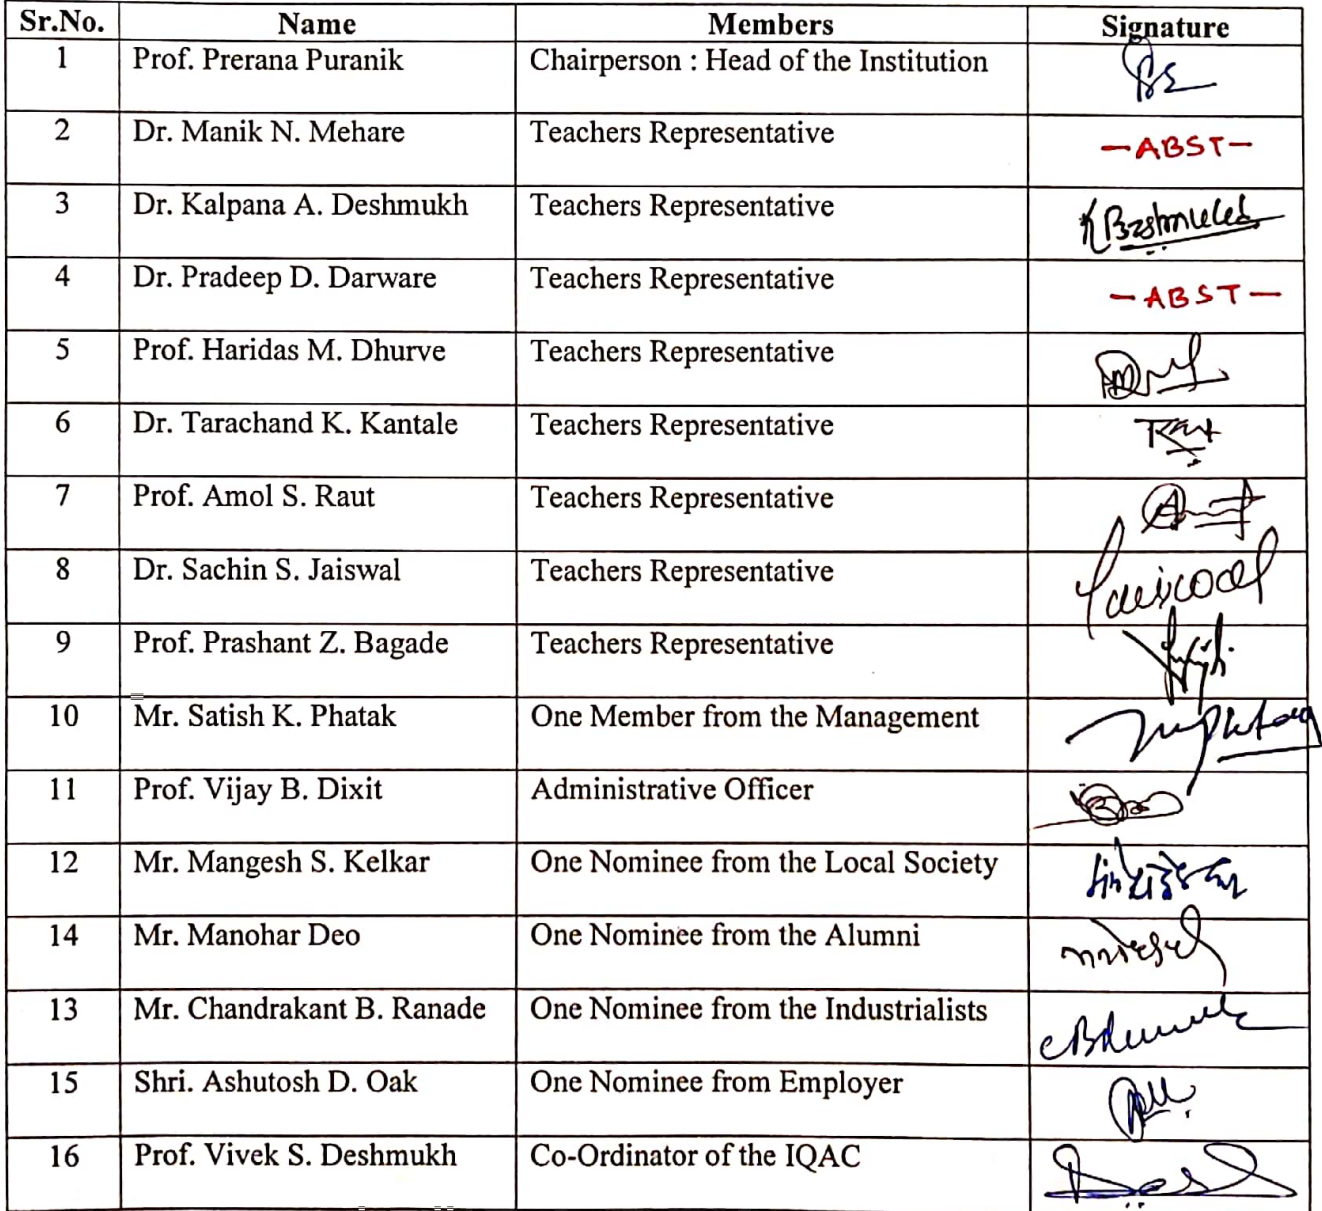 Sr.No. Name Members Signature
1 Prof. Prerana Puranik Chairperson : Head of the Institution
2 Dr. Manik N. Mehare Teachers Representative -ABST-
3 Dr. Kalpana A. Deshmukh Teachers Representative
4 Dr. Pradeep D. Darware Teachers Representative -ABST-
5 Prof. Haridas M. Dhurve Teachers Representative
6 Dr. Tarachand K. Kantale Teachers Representative
7 Prof. Amol S. Raut Teachers Representative
8 Dr. Sachin S. Jaiswal Teachers Representative
9 Prof. Prashant Z. Bagade Teachers Representative
10 Mr. Satish K. Phatak One Member from the Management
11 Prof. Vijay B. Dixit Administrative Officer
12 Mr. Mangesh S. Kelkar One Nominee from the Local Society
14 Mr. Manohar Deo One Nominee from the Alumni
13 Mr. Chandrakant B. Ranade One Nominee from the Industrialists
15 Shri. Ashutosh D. Oak One Nominee from Employer
16 Prof. Vivek S. Deshmukh Co-Ordinator of the IQAC